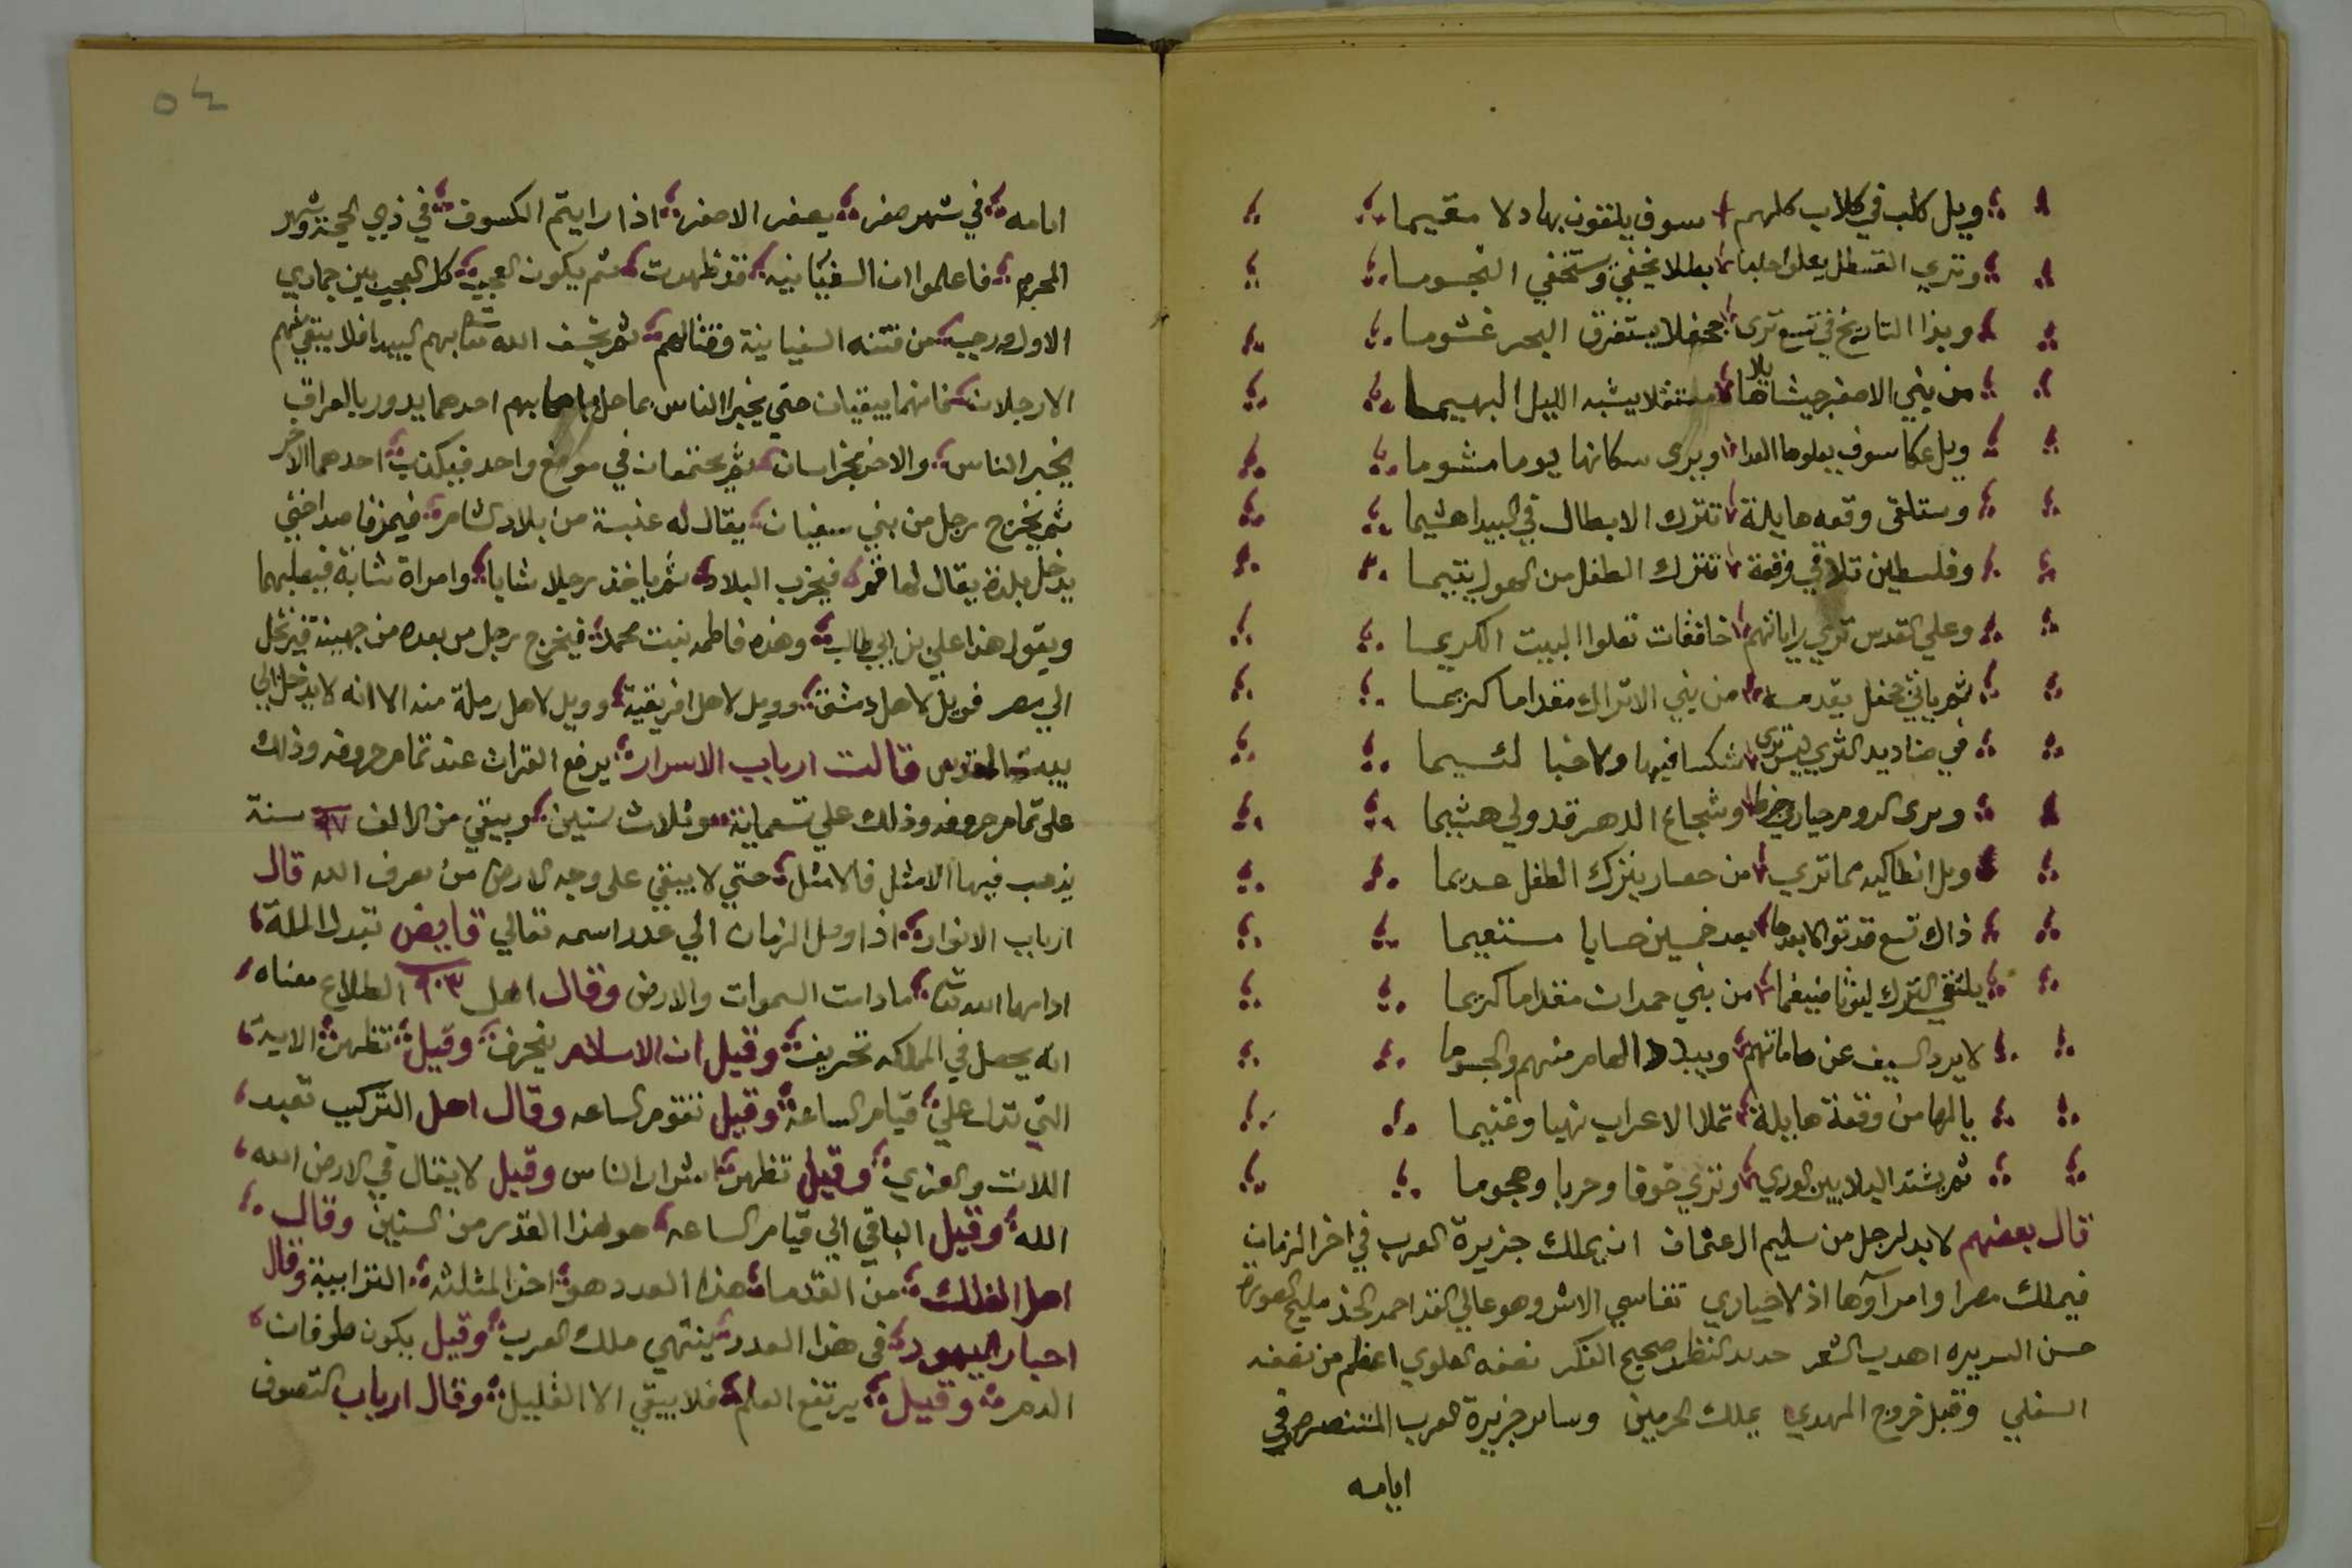 ويل كلب في كلاب كلهم سوف يلقون بها دلا مقيما
وتري القسطل يعلوا حلبا بطلا يخفي وستخفي النجوما
وبذا التاريخ في تسع تري جحفلا يستغرق البحر غشوما
من بني الاصفر جيشا هايلا يشبه الليل البهيما
ويل عكا سوف يعلوها العدا ويرى سكانها يوما مشوما
وستلقى وقعه هايلة تترك الابطال في البيدا هشيما
وفلسطين تلاقي وقعة تترك الطفل من الهول يتيما
وعلي القدس تري راياتهم خافقات تعلوا البيت الكريما
ثم ياتي جحفل يقدمه من بني الاتراك مقداما كريما
في صناديد الثري ليس تري شكسا فيها ولا خبا لئيما
ويرى الروم حياري وشجاع الدهر قد ولي هشيما
ويل انطاكيه مما تري من حصار يترك الطفل عديما
ذاك تسع قد تولا بعدها بعد خمسين حسابا مستقيما
يلتقي الترك ليوثا ضيغما من بني حمدان مقداما كريما
لا يرد السيف عن هاماتهم ويبيد الهام منهم والجسوما
يالها من وقعة هايلة تملا الاعراب نهبا وغنيما
ثم يشتد البلا بين الوري وتري خوفا وحربا وهجوما
قال بعضهم لابد لرجل من سليم ال عثمان ان يملك جزيرة العرب في اخر الزمان
فيملك مصرا وامرآؤها اذ لاحياري تقاسي الاش وهو عالي القد احمد الخد مليح الصورة
حسن السريره اهدب الشعر حديد النظر صحيح الفكر نصفه العلوي اعظم من نصفه
السفلي وقبل خروج المهدي يملك الحرمين وساير جزيرة العرب في
ايامه
٥٤
ايامه في شهر صفر يصفر الاصفر اذا رايتم الكسوف في ذي الحجة وشهر
المحرم فاعلموا ان السفيانيه قد ظهرت ثم يكون العجب كل العجب بين جمادي
الاول ورجب من فتنه السفيانية وقتالهم ثم يخسف الله تعا بهم البيدا فلا يبقي منهم
الا رجلان فانهما يبقيان حتي يخبرا الناس بما حل باصحابهم احدهما يدور بالعراق
يخبر الناس والاخر بخراسان ثم يجتمعان في موضع واحد فيكذب احدهما الاخر
ثم يخرج رجل من بني سفيان يقال له عنبسة من بلاد الشام فيمر قاصدا حتي
يدخل بلدة يقال لها فيخرب البلاد ثم ياخذ رجلا شابا وامراة شابة فيصلبهما
ويقول هذا علي بن ابي طالب وهذه فاطمه بنت محمد فيخرج رجل من بعده من جهينة فيرتحل
الي مصر فويل لاهل دمشق وويل لاهل افريقية وويل لاهل رملة منه الا انه لا يدخل الي
بيت المقدس قالت ارباب الاسرار يرفع القران عند تمام حروفه وذلك
على تمام حروفه وذلك علي تسعماية وثلاث سنين ويبقي من الالف ٩٧ سنة
يذهب فيها الامثل فالامثل حتي لا يبقي على وجه الارض من يعرف الله قال
ارباب الانوار اذا وصل الزمان الي عدد اسمه تعالي قابض تبدل الملة
ادامها الله تعا مادامت السموات والارض وقال اهل ٩٠٣ الطلاع معناه
انه يحصل في المملكه تحريف وقيل ان الاسلام ينحرف وقيل تظهر الاية
التي تدل علي قيام الساعة وقيل تقوم الساعه وقال اهل التركيب تعبد
اللات والعزي وقيل تظهر اشرار الناس وقيل لا يقال في الارض الله
الله وقيل الباقي الي قيام الساعه هو لهذا القدر من السنين وقال
اهل الفلك من القدما هذا العدد هو اخر المثلثه الترابية وقال
احبار اليهود في هذا العدد ينتهي ملك العرب وقيل يكون طوفان
الدهر وقيل يرتفع العلم فلا يبقي الا القليل وقال ارباب التصوف